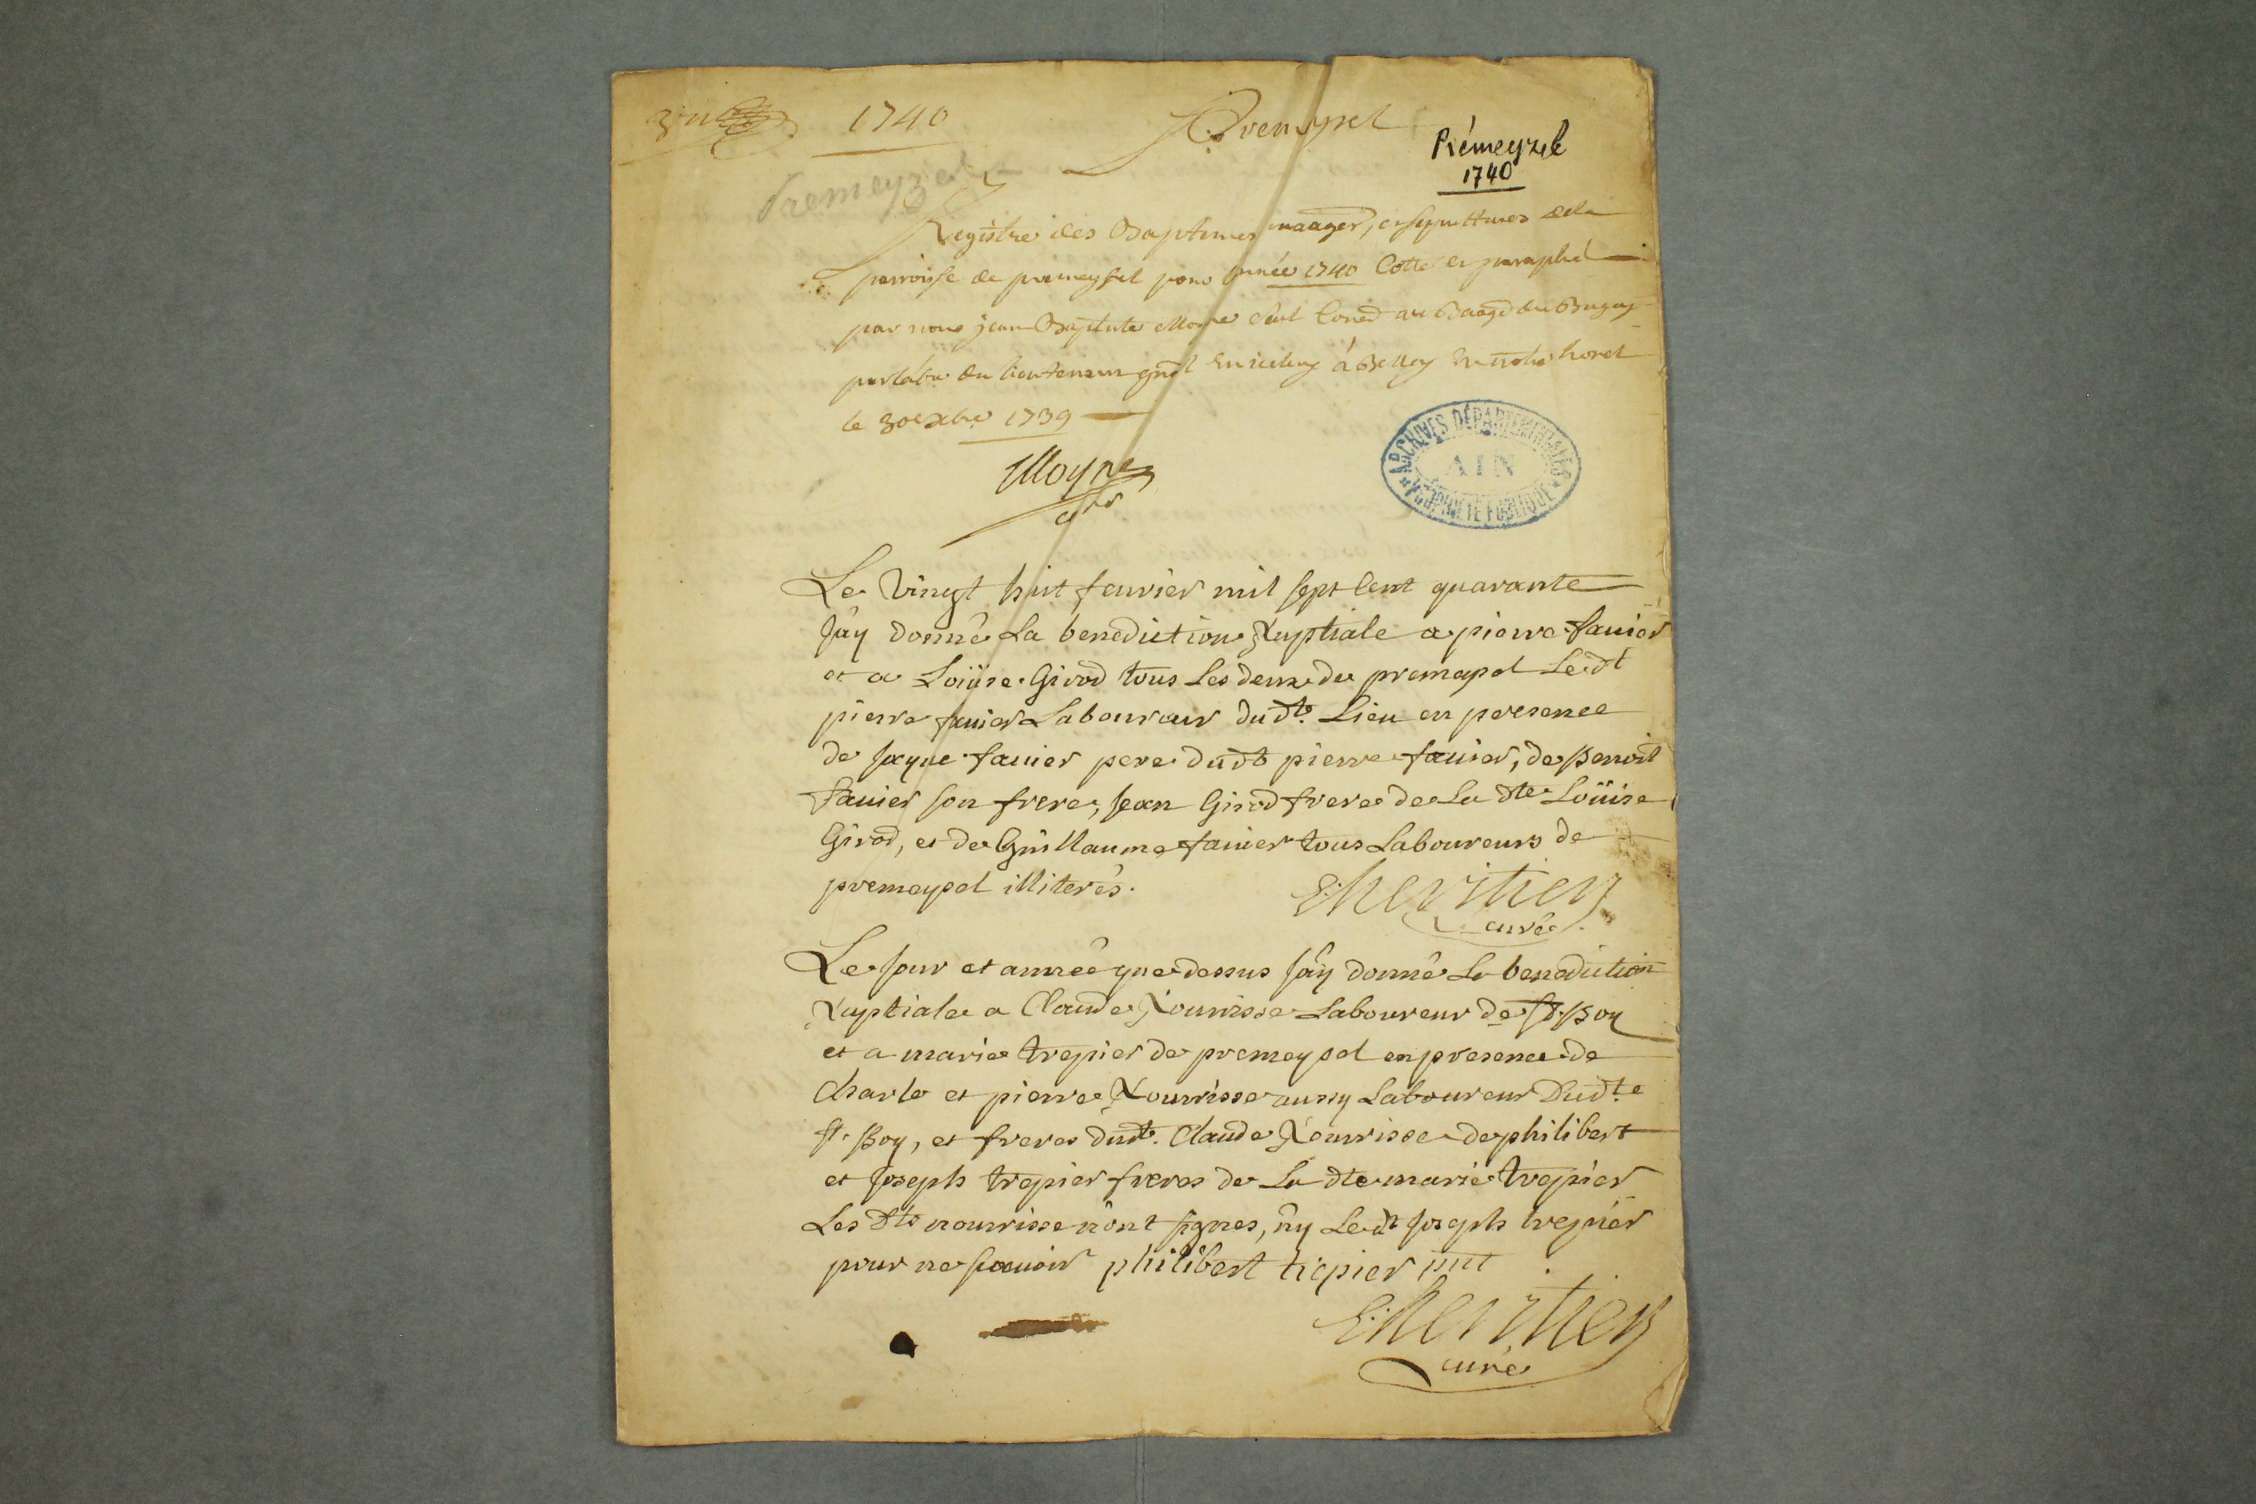 1740
Premeysel
Prémeyzel
1740
Premeyzel
Registre des Baptemes mariages, et sepultures de la
parroisse de premeysel pour l'année 1740 Cotté et paraphé
par nous jean Baptiste Moyne au Bailliage du Bugey
du lieutenant gnal à Belley en notre hotel
le 30e xbre 1739
Moyne
ARCHIVES DÉPARTEMENTALES
AIN
PROPRIÉTÉ PUBLIQUE
Le Vingt huit feuvier mil sept Cent quarante
J'ay donné La benediction Nuptiale a pierre fauier
et a Loüise Girod tous Les deux de premeysel Ledt
pierre fauier Laboureur dudt. Lieu en presence
de Jayme fauier pere dudt pierre fauier, de Benoit
fauier son frere, Jean Girod frere de La dte Loüise
Girod, et de Guillaume fauier tous Laboureurs de
premeysel illiterés.
Lheritier
curé
Le Jour et année que dessus J'ay donné La benediction
Nuptiale a Claude Nourrisse Laboureur de St. Boy
et a marie trepier de premeysel en presence de
Charle et pierre Nourrisse aussy Laboureur Dudt.
St. Boy, et freres dudt. Claude Nourrisse de philibert
et Joseph trepier freres de La dte marie trepier
Les dts nourrisse n'ont signes, ny Le dt Joseph trepier
pour ne scauoir philibert trepier pnt
Lheritier
curé